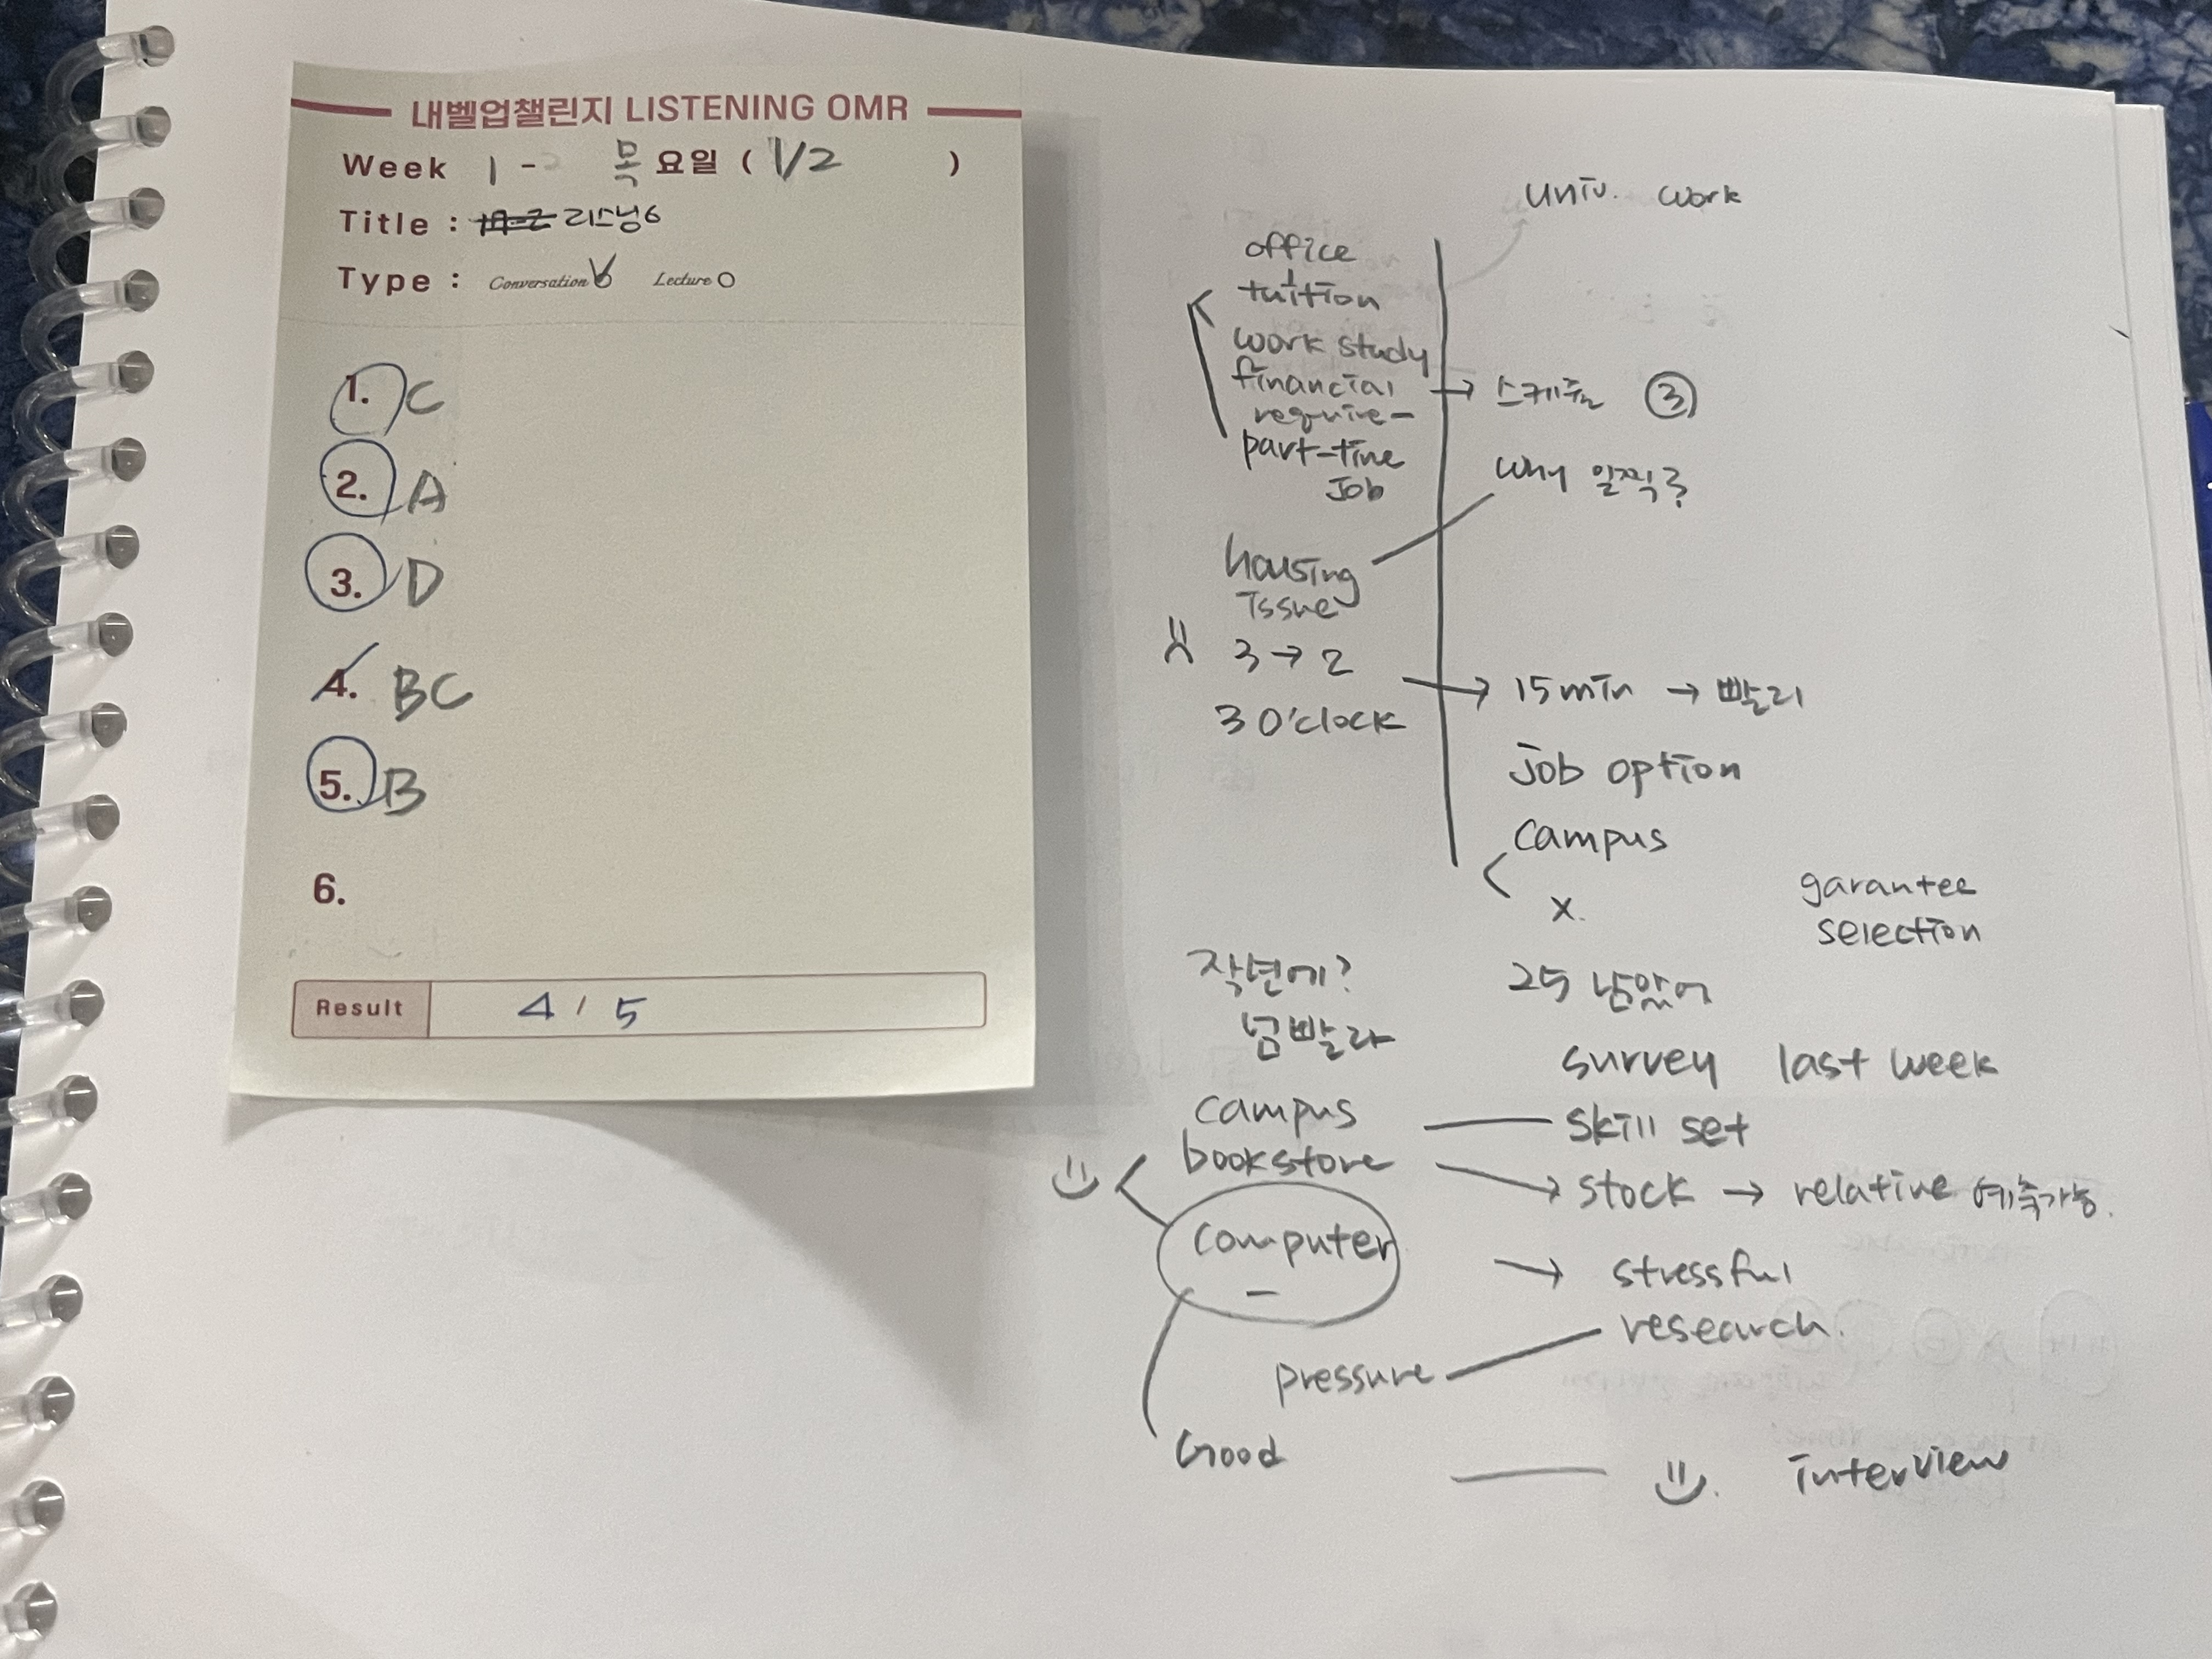 내벨업챌린지 LISTENING OMR
Week 1 - 목요일 ( 1/2 )
Title : 리스닝6
Type : Conversation Lecture
1. C
2. A
3. D
4. BC
5. B
6.
Result 4 / 5
univ. work
office
tuition
work study
financial → 스케쥴 ③
require-
part-time
Job
why 일찍?
housing
issue
3 → 2
3 O'clock → 15min → 빨리
job option
campus
x.
garantee
selection
작년에? 25 남았어
넘빨라
survey last week
campus skill set
bookstore → stock → relative 예측가능.
computer → stressful
research.
pressure
Good interview